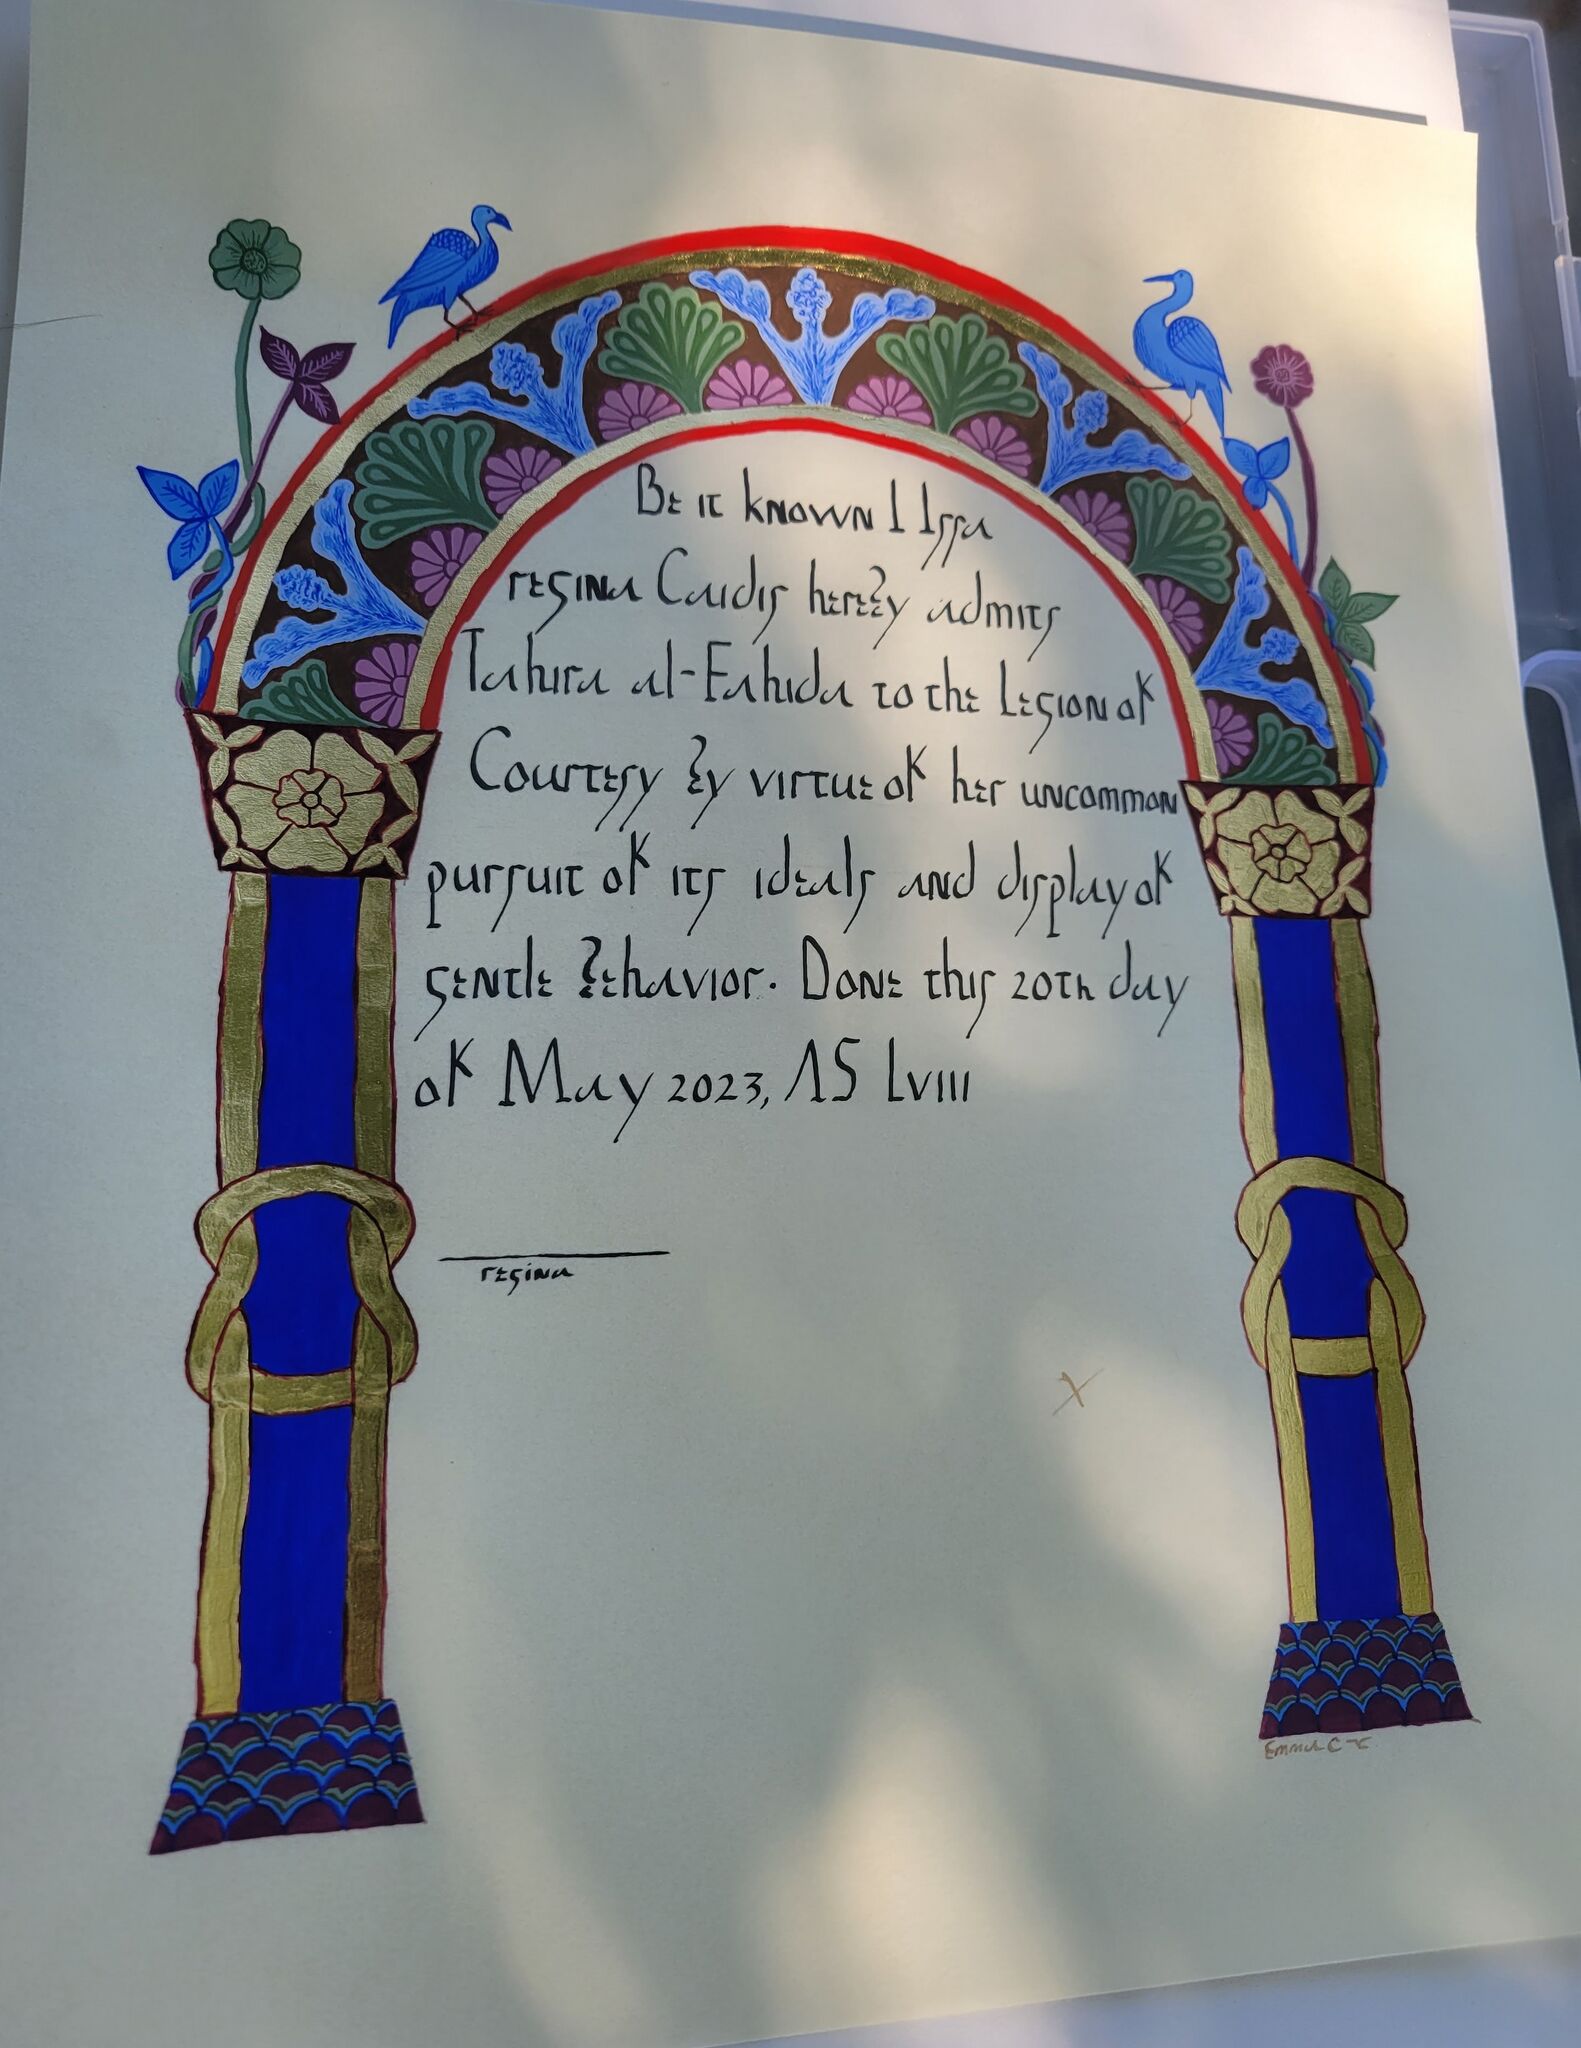 Be it known I Issa
regina Caidis hereby admits
Tahira al-Fahida to the Legion of
Courtesy by virtue of her uncommon
pursuit of its ideals and display of
gentle behavior. Done this 20th day
of May 2023, AS LVIII
regina
X